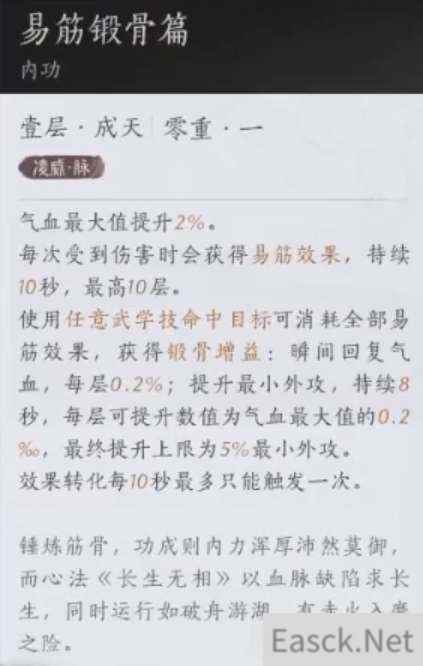 易筋锻骨篇
内功
壹层·成天 零重·一
凌威·脉
气血最大值提升2%。
每次受到伤害时会获得易筋效果，持续
10秒，最高10层。
使用任意武学技命中目标可消耗全部易
筋效果，获得锻骨增益：瞬间回复气
血，每层0.2%；提升最小外攻，持续8
秒，每层可提升数值为气血最大值的0.2
‰，最终提升上限为5%最小外攻。
效果转化每10秒最多只能触发一次。
锤炼筋骨，功成则内力浑厚沛然莫御，
而心法《长生无相》以血脉缺陷求长
生，同时运行如破舟游湖，有走火入魔
之险。
Easck.Net